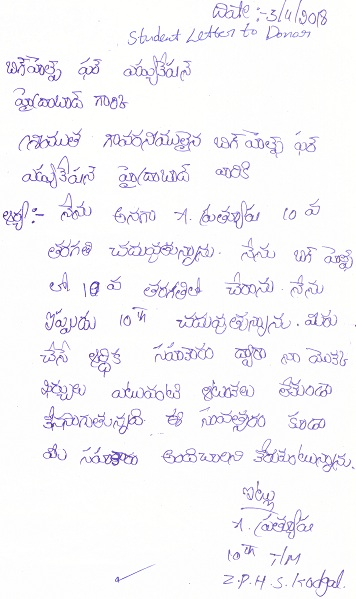 తేది :- 3/4/2018
Student Letter to Donar
బిగ్ హెల్ప్ ఫర్ ఎడ్యుకేషన్
హైదరాబాద్ గారికి
గౌరవనీయులైన బిగ్ హెల్ప్ ఫర్
ఎడ్యుకేషన్ హైదరాబాద్ వారికి
నేను అనగా 10 వ
తరగతి చదువుతున్నాను. నేను బిగ్ హెల్ప్
లో 10 వ తరగతిలో చేరాను. నేను
ఇప్పుడు 10th చదువుతున్నాను. మీరు
చేసే ఆర్థిక సహకారం ద్వారా నా యొక్క
ఎటువంటి ఆటంకాలు లేకుండా
కొనసాగుతున్నది ఈ సంవత్సరం కూడా
మీ సహకారం అందించాలని కోరుకుంటున్నాను.
ఇట్లు
10th T/M
Z.P.H.S. Kodgal.